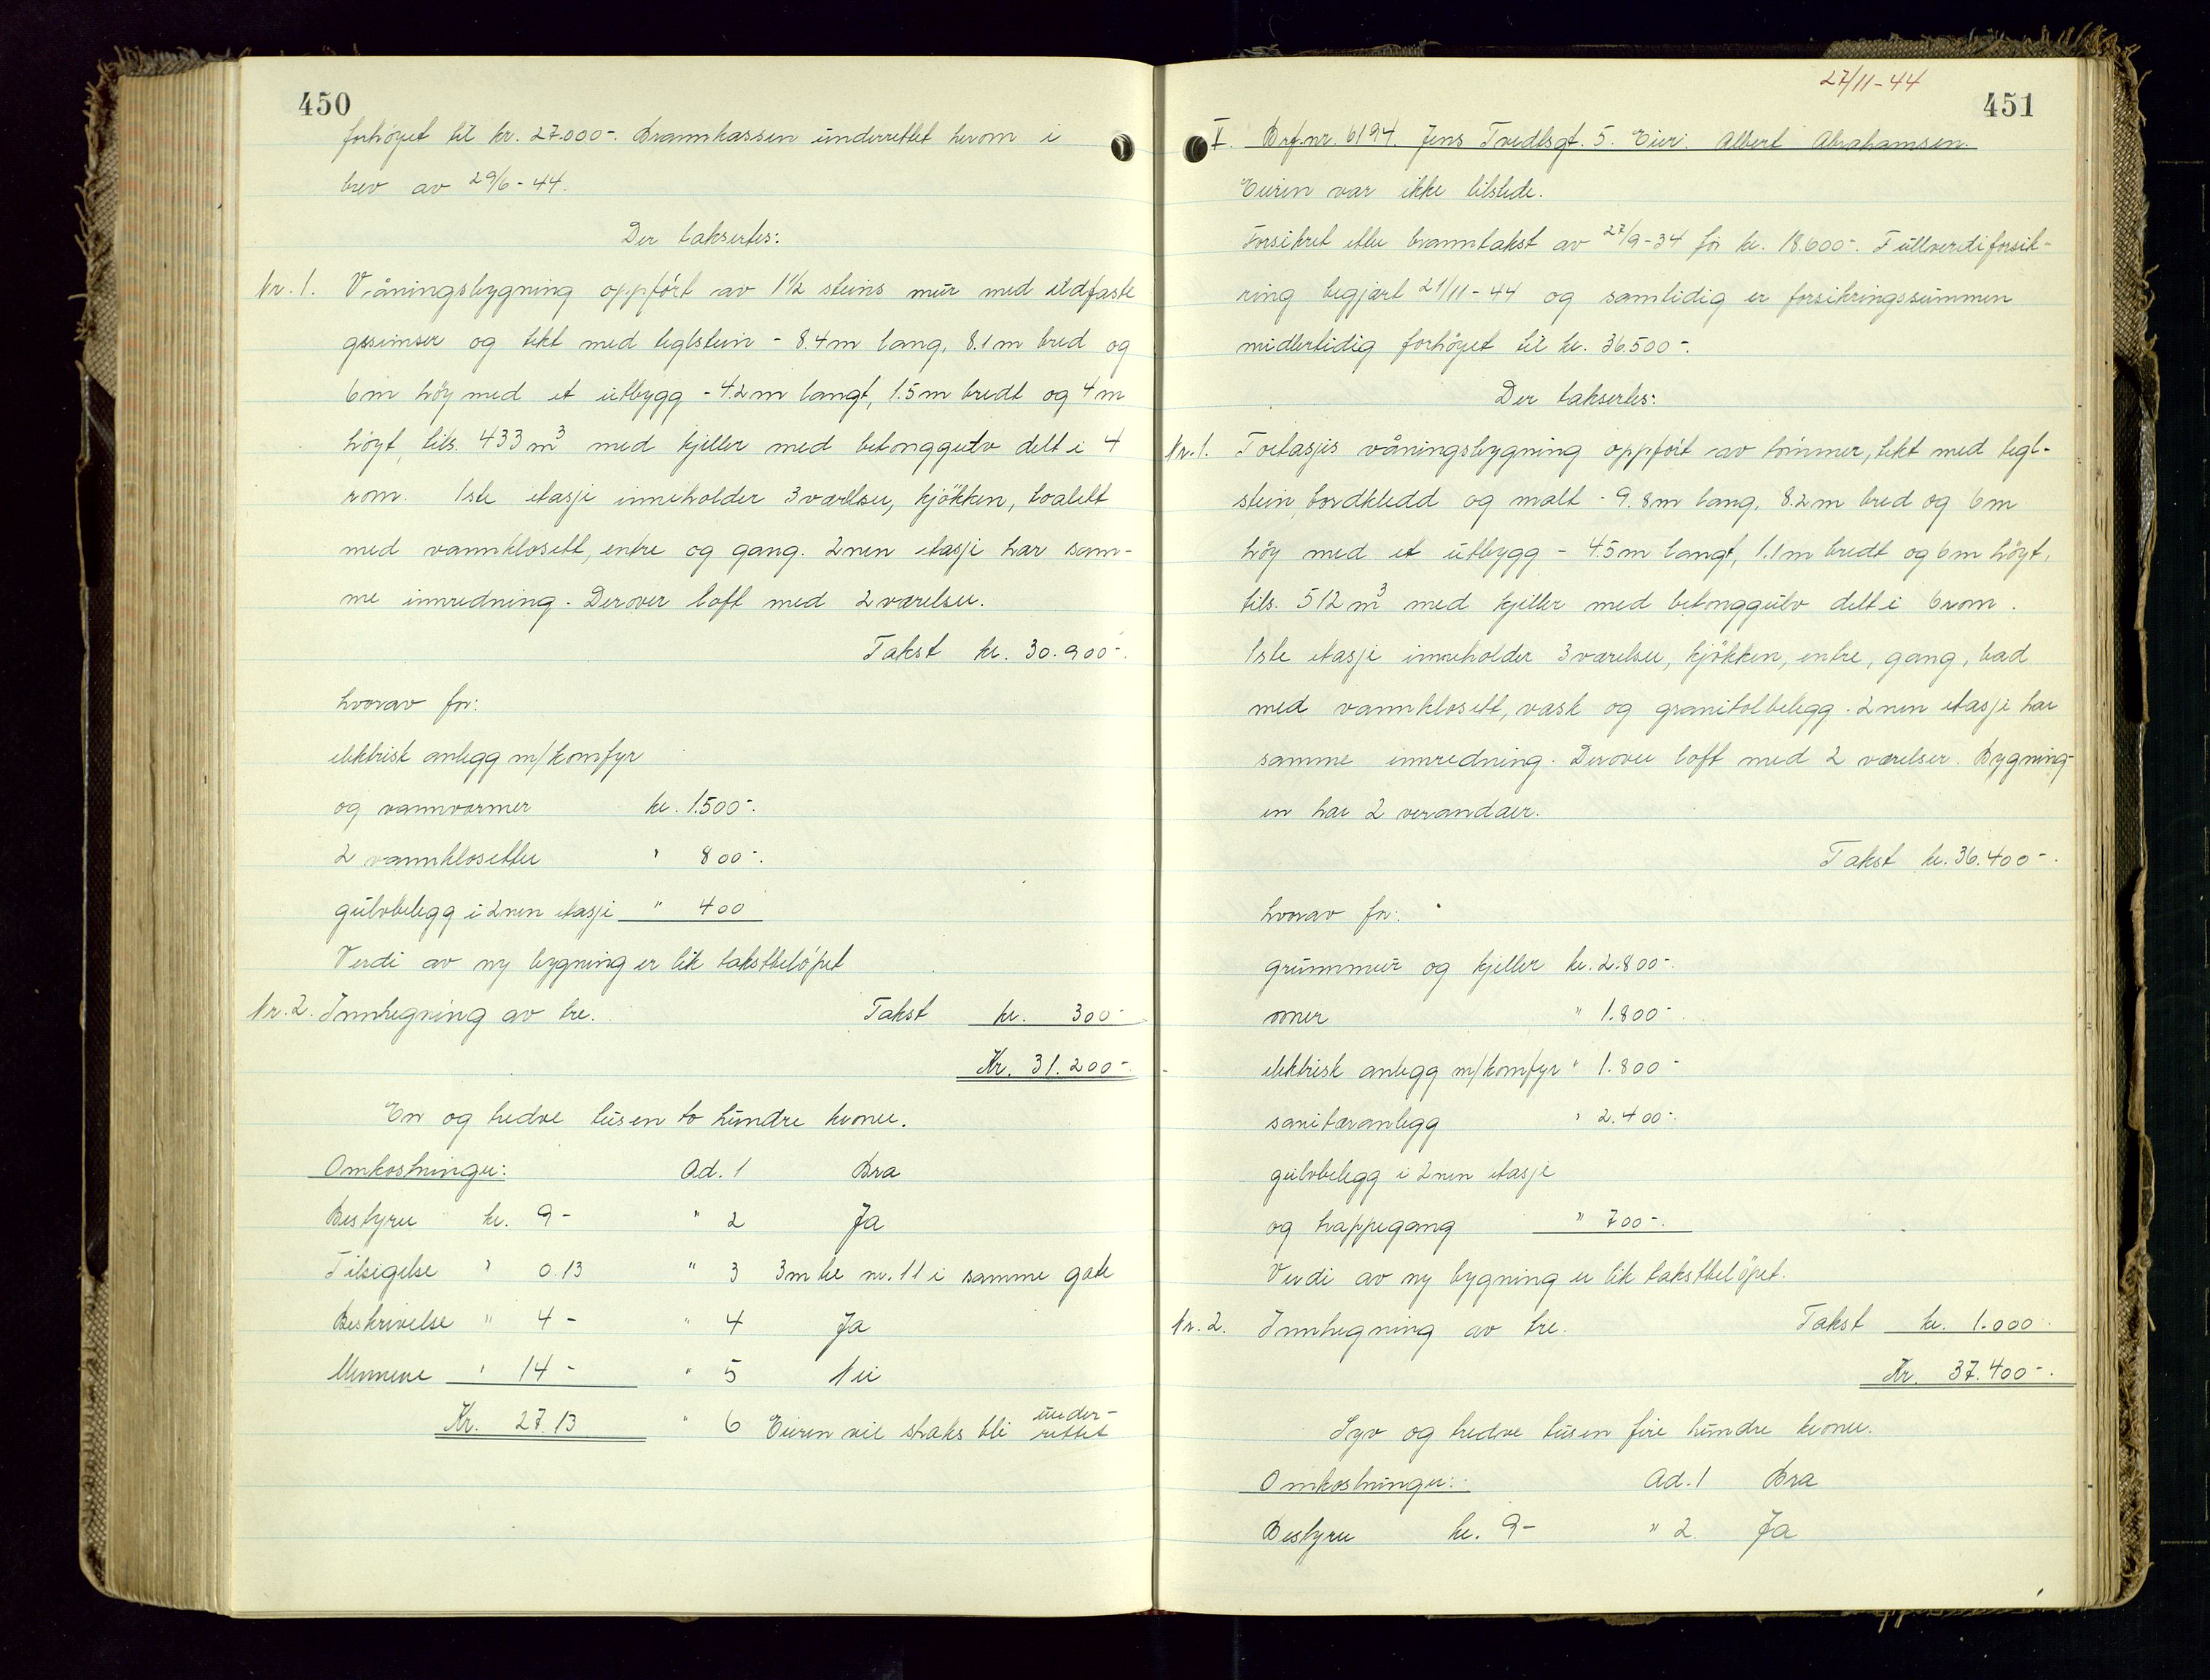 450
forhøyet til kr. 27.000-. Brannkassen underrettet herom i
brev av 29/6-44.
Der taksertes:
Nr. 1. Våningsbygning oppført av 1½ steins mur med ildfaste
gesimser og tekt med teglstein - 8.4m lang, 8.1m bred og
6m høy med et utbygg - 4.2m langt, 1.5m bredt og 4m
høyt, tils. 433 m³ med kjeller med betonggulv delt i 4
rom. 1ste etasje inneholder 3 værelser, kjøkken, toalett
med vannklosett, entre og gang. 2nen etasje har sam-
me innredning. Derover loft med 2 værelser.
Takst kr. 30.900-.
hvorav for:
elektrisk anlegg m/komfyr
og vannvarmer kr. 1.500-.
2 vannklosetter " 800-.
gulvbelegg i 2nen etasje " 400
Verdi av ny bygning er lik takstbeløpet
Nr. 2. Innhegning av tre. Takst kr. 300-
Kr. 31.200-.
En og tredve tusen to hundre kroner.
Omkostninger: Ad. 1 Bra
Bestyrer kr. 9- " 2 Ja
Tilsigelse " 0.13 " 3 3m til nr. 11 i samme gate
Beskrivelse " 4- " 4 Ja
Mennene " 14- " 5 Nei
Kr. 27.13 " 6 Eieren vil straks bli under-
rettet
27/11-44
451
V. Brf.nr. 6194. Jens Tvedtsgt. 5. Eier: Albert Abrahamsen.
Eieren var ikke tilstede.
Forsikret etter branntakst av 27/9-34 for kr. 18.600-. Fullverdiforsik-
ring begjært 21/11-44 og samtidig er forsikringssummen
midlertidig forhøyet til kr. 36.500-.
Der taksertes:
Nr. 1. Toetasjes våningsbygning oppført av tømmer, tekt med tegl-
stein, bordkledd og malt - 9.8m lang, 8.2m bred og 6m
høy med et utbygg - 4.5m langt, 1.1m bredt og 6m høyt,
tils. 512 m³ med kjeller med betonggulv delt i 6 rom.
1ste etasje inneholder 3 værelser, kjøkken, entre, gang, bad
med vannklosett, vask og granitolbelegg. 2nen etasje har
samme innredning. Derover loft med 2 værelser. Bygning-
en har 2 verandaer.
Takst kr. 36.400-.
hvorav for:
grunnmur og kjeller kr. 2.800-.
ovner " 1.800-.
elektrisk anlegg m/komfyr " 1.800-
sanitæranlegg " 2.400-.
gulvbelegg i 2nen etasje
og trappegang " 700-.
Verdi av ny bygning er lik takstbeløpet.
Nr. 2. Innhegning av tre. Takst kr. 1.000-
Kr. 37.400-.
Syv og tredve tusen fire hundre kroner.
Omkostninger: Ad. 1 Bra
Bestyrer kr. 9- " 2. Ja